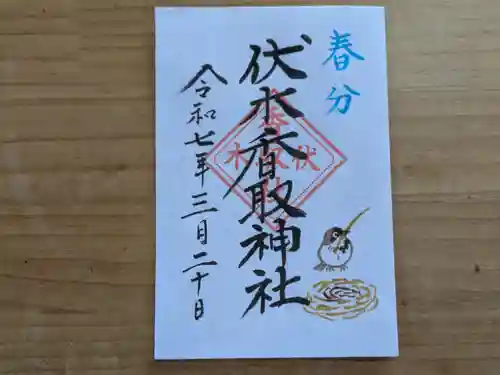 春分
伏水香取神社
令和七年三月二十日